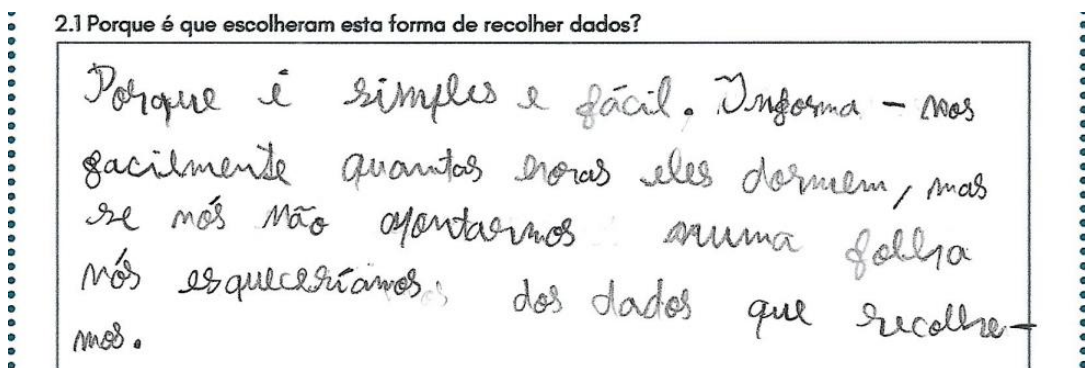 2.1 Porque é que escolheram esta forma de recolher dados?
Porque é simples e fácil. Informa - nos
facilmente quantas horas eles dormem, mas
se nós não apontarmos numa folha
nós esqueceríamos dos dados que recolhe-
mos.